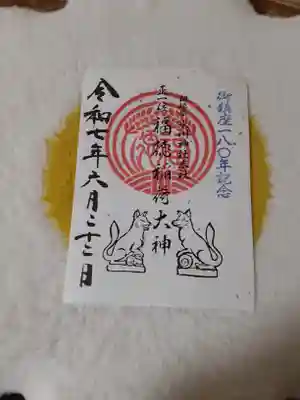 御鎮座一八〇年記念
正一位福徳稲荷大神
令和七年六月二十二日